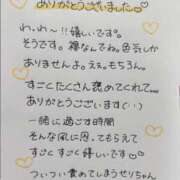 ありがとうございました
わ、わ〜!!嬉しいです。
そうです。裸なんでね。色気しか
ありませんよ。えぇ。もちろん。
すごくたくさん褒めてくれて、、、
ありがとうございます(^^)
一緒に過ごす時間
そんな風に思ってもらえて
すごくすごく嬉しいです
ついつい責めてしまうせりちゃん